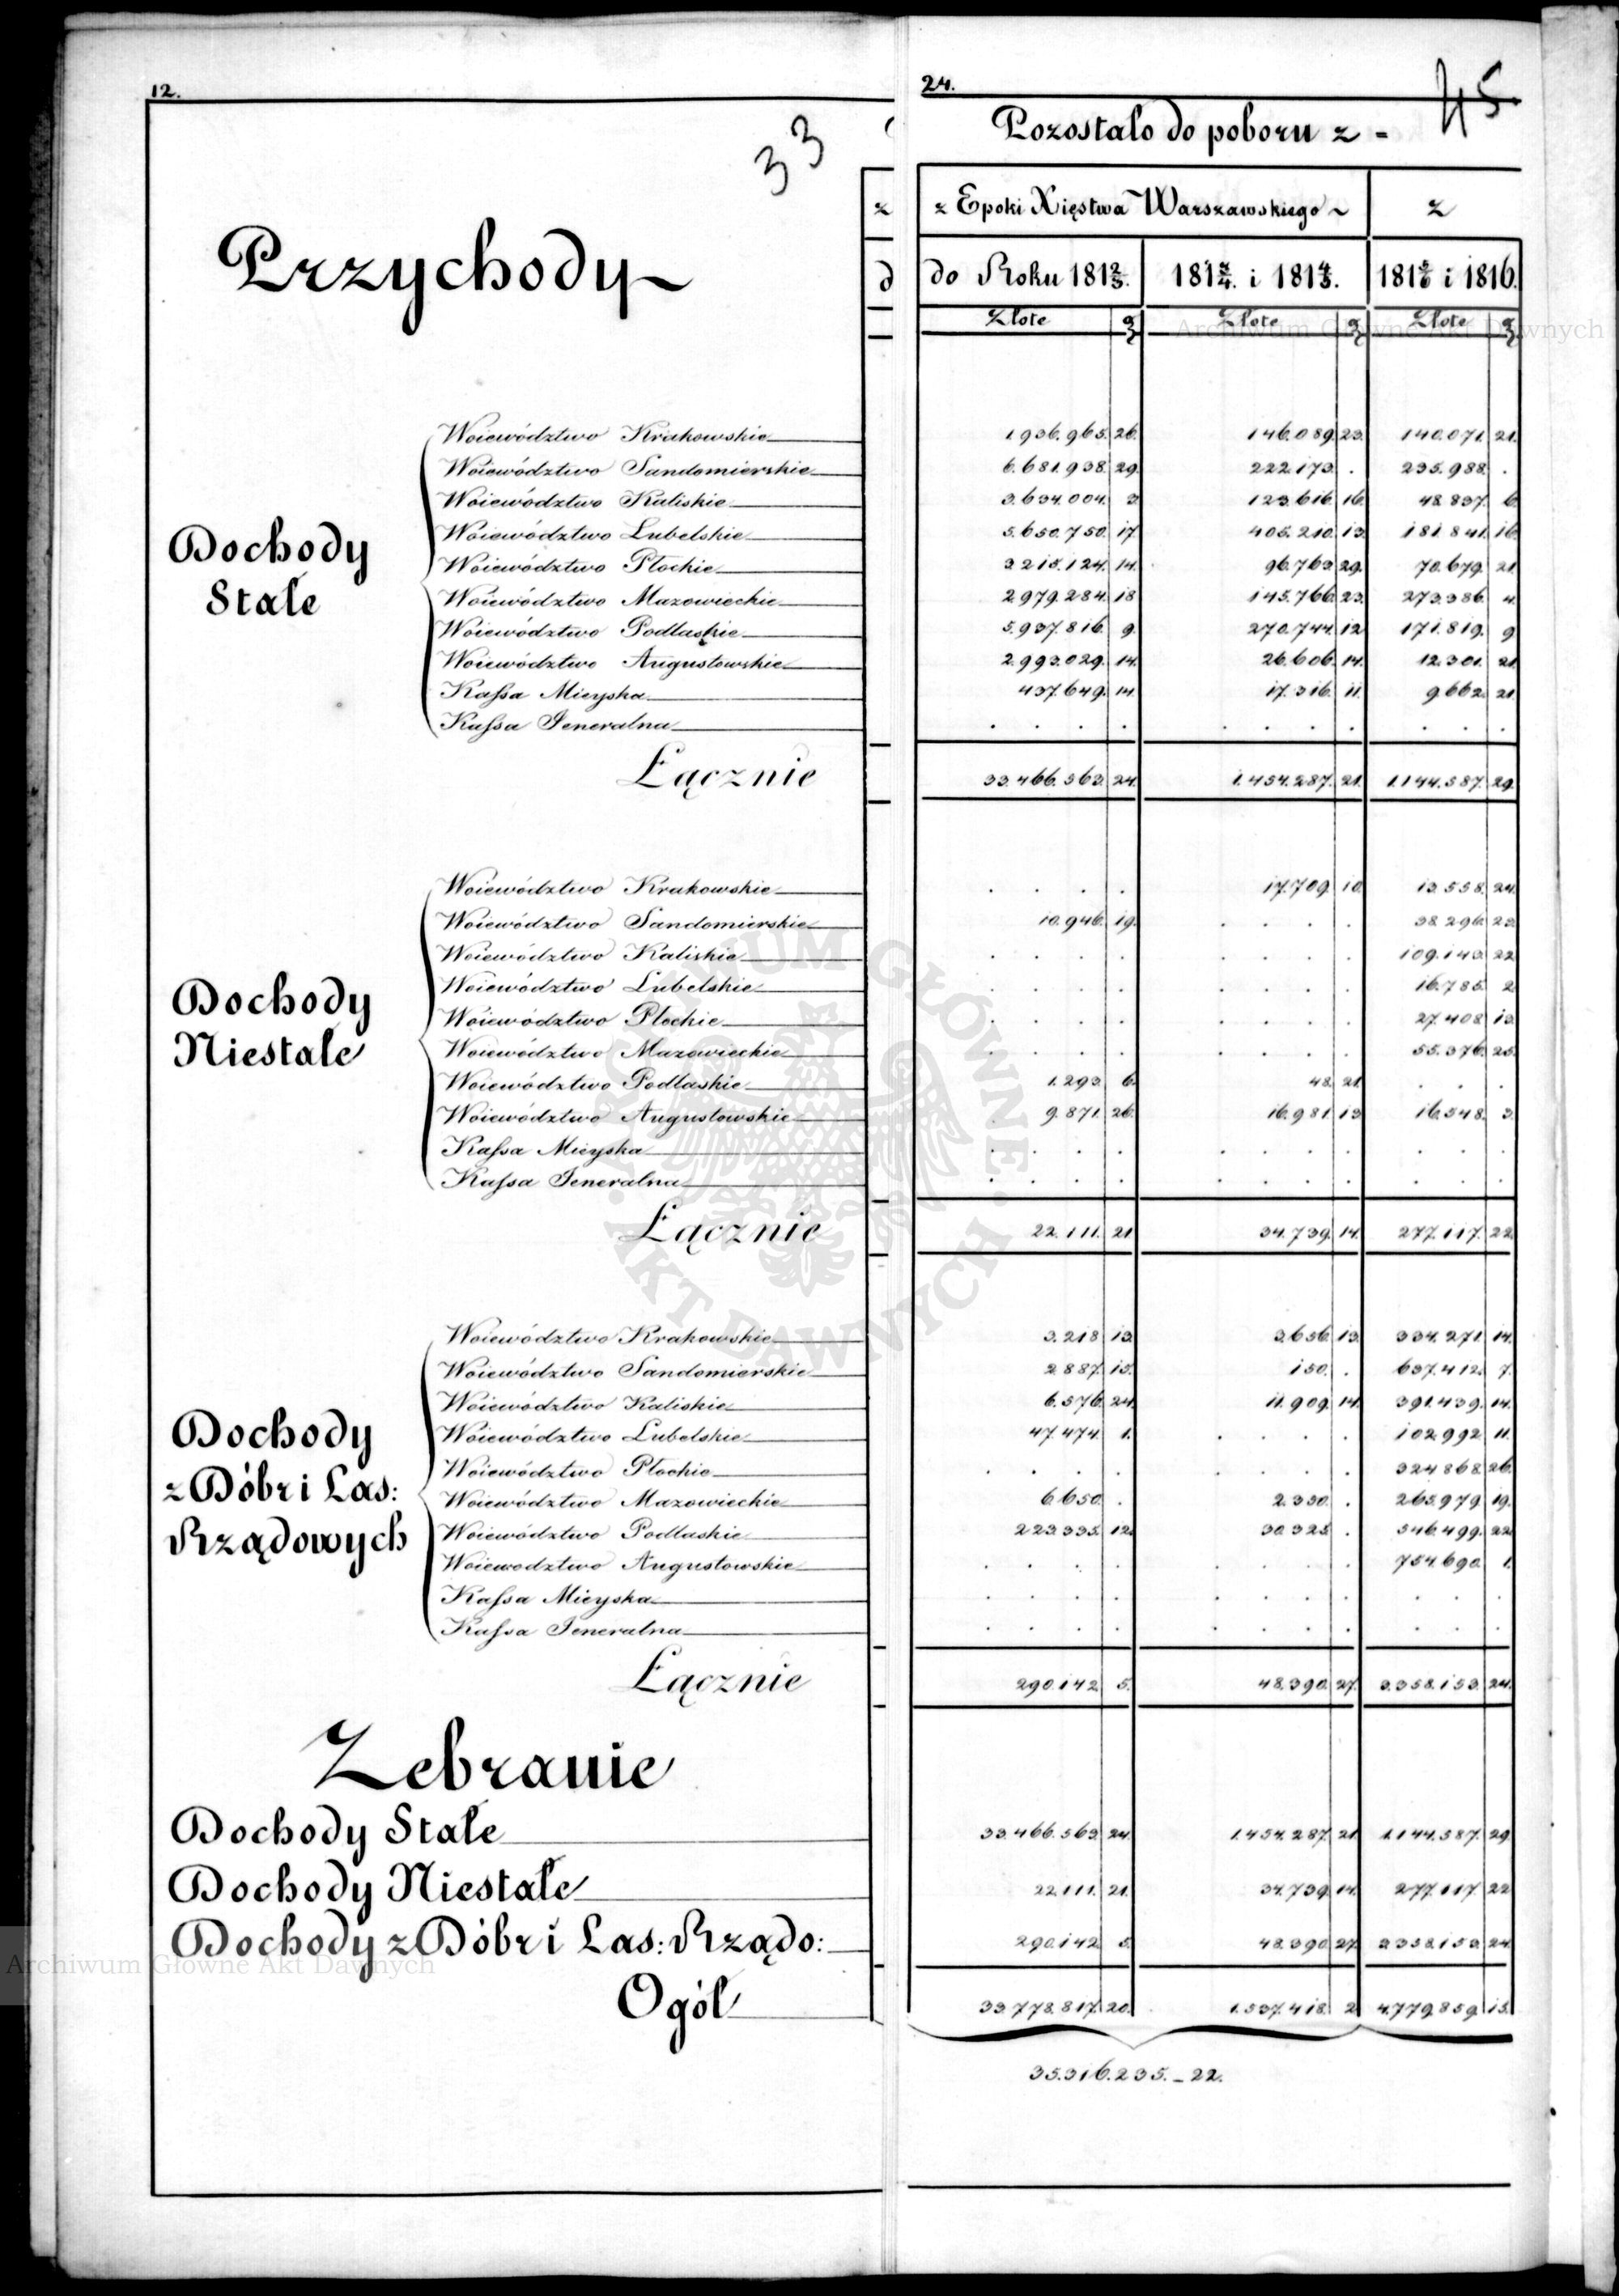 12.
33
Przychody
z
d
24.
45
Pozostało do poboru z -
z Epoki Xięstwa Warszawskiego
z
do Roku 181 2/3.
181 3/4. i 181 4/5.
181 5/6 i 1816.
Złote gr Złote gr Złote gr
Dochody Stałe
Woiewództwo Krakowskie 1.936.965. 26. 146.089. 23. 140.071. 21.
Woiewództwo Sandomierskie 6.681.938. 29. 222.173. . 235.988. .
Woiewództwo Kaliskie 3.634.004. 3 123.616. 16. 48.837. 6.
Woiewództwo Lubelskie 5.650.750. 17. 405.210. 13. 181.841. 16.
Woiewództwo Płockie 3.215.124. 14. 96.763. 29. 70.679. 21.
Woiewództwo Mazowieckie 2.979.284. 18 145.766. 23. 273.386. 4.
Woiewództwo Podlaskie 5.937.816. 9. 270.744. 12 171.819. 9
Woiewództwo Augustowskie 2.993.029. 14. 26.606. 14. 12.301. 21.
Kassa Mieyska 437.649. 14. 17.316. 11. 9.662. 21.
Kassa Jeneralna . . . . . . . . . . .
Łącznie 33.466.563. 24. 1.454.287. 21. 1.144.587. 29.
Dochody Niestałe
Woiewództwo Krakowskie . . . . 17.709. 10. 13.558. 24.
Woiewództwo Sandomierskie 10.946. 19. . . . . 38.296. 23.
Woiewództwo Kaliskie . . . . . . . . 109.143. 22.
Woiewództwo Lubelskie . . . . . . . . 16.785. 2
Woiewództwo Płockie . . . . . . . . 27.408. 13.
Woiewództwo Mazowieckie . . . . . . . . 55.376. 25.
Woiewództwo Podlaskie 1.293. 6. 48. 21. . . .
Woiewództwo Augustowskie 9.871. 26. 16.981. 13 16.548. 3.
Kassa Mieyska . . . . . . . . . . .
Kassa Jeneralna . . . . . . . . . . .
Łącznie 22.111. 21 34.739. 14. 277.117. 22.
Dochody z Dóbr i Las: Rządowych
Woiewództwo Krakowskie 3.218 13. 3.656. 13. 334.271. 14.
Woiewództwo Sandomierskie 2.887. 15. 150. . 637.412. 7.
Woiewództwo Kaliskie 6.576. 24. 11.909. 14. 391.439. 14.
Woiewództwo Lubelskie 47.474. 1. . . . . 102.992. 11.
Woiewództwo Płockie . . . . . . . . 324.868. 26.
Woiewództwo Mazowieckie 6.650. . 2.350. . 265.979. 19.
Woiewództwo Podlaskie 223.335. 12. 30.325. . 546.499. 22
Woiewodztwo Augustowskie . . . . . . . . 754.690. 1.
Kassa Mieyska . . . . . . . . . . .
Kassa Jeneralna . . . . . . . . . . .
Łącznie 290.142. 5. 48.390. 27. 3.358.153. 24.
Zebranie
Dochody Stałe 33.466.563. 24. 1.454.287. 21. 1.144.587. 29.
Dochody Niestałe 22.111. 21. 34.739. 14. 277.117. 22
Dochody z Dóbr i Las: Rządo: 290.142. 5. 48.390. 27. 3.358.153. 24.
Ogół 33.778.817. 20. 1.537.418. 2 4.779.859. 15.
35.316.235. - 22.
Archiwum Główne Akt Dawnych
ARCHIWUM GŁÓWNE · AKT DAWNYCH ·
Archiwum Główne Akt Dawnych